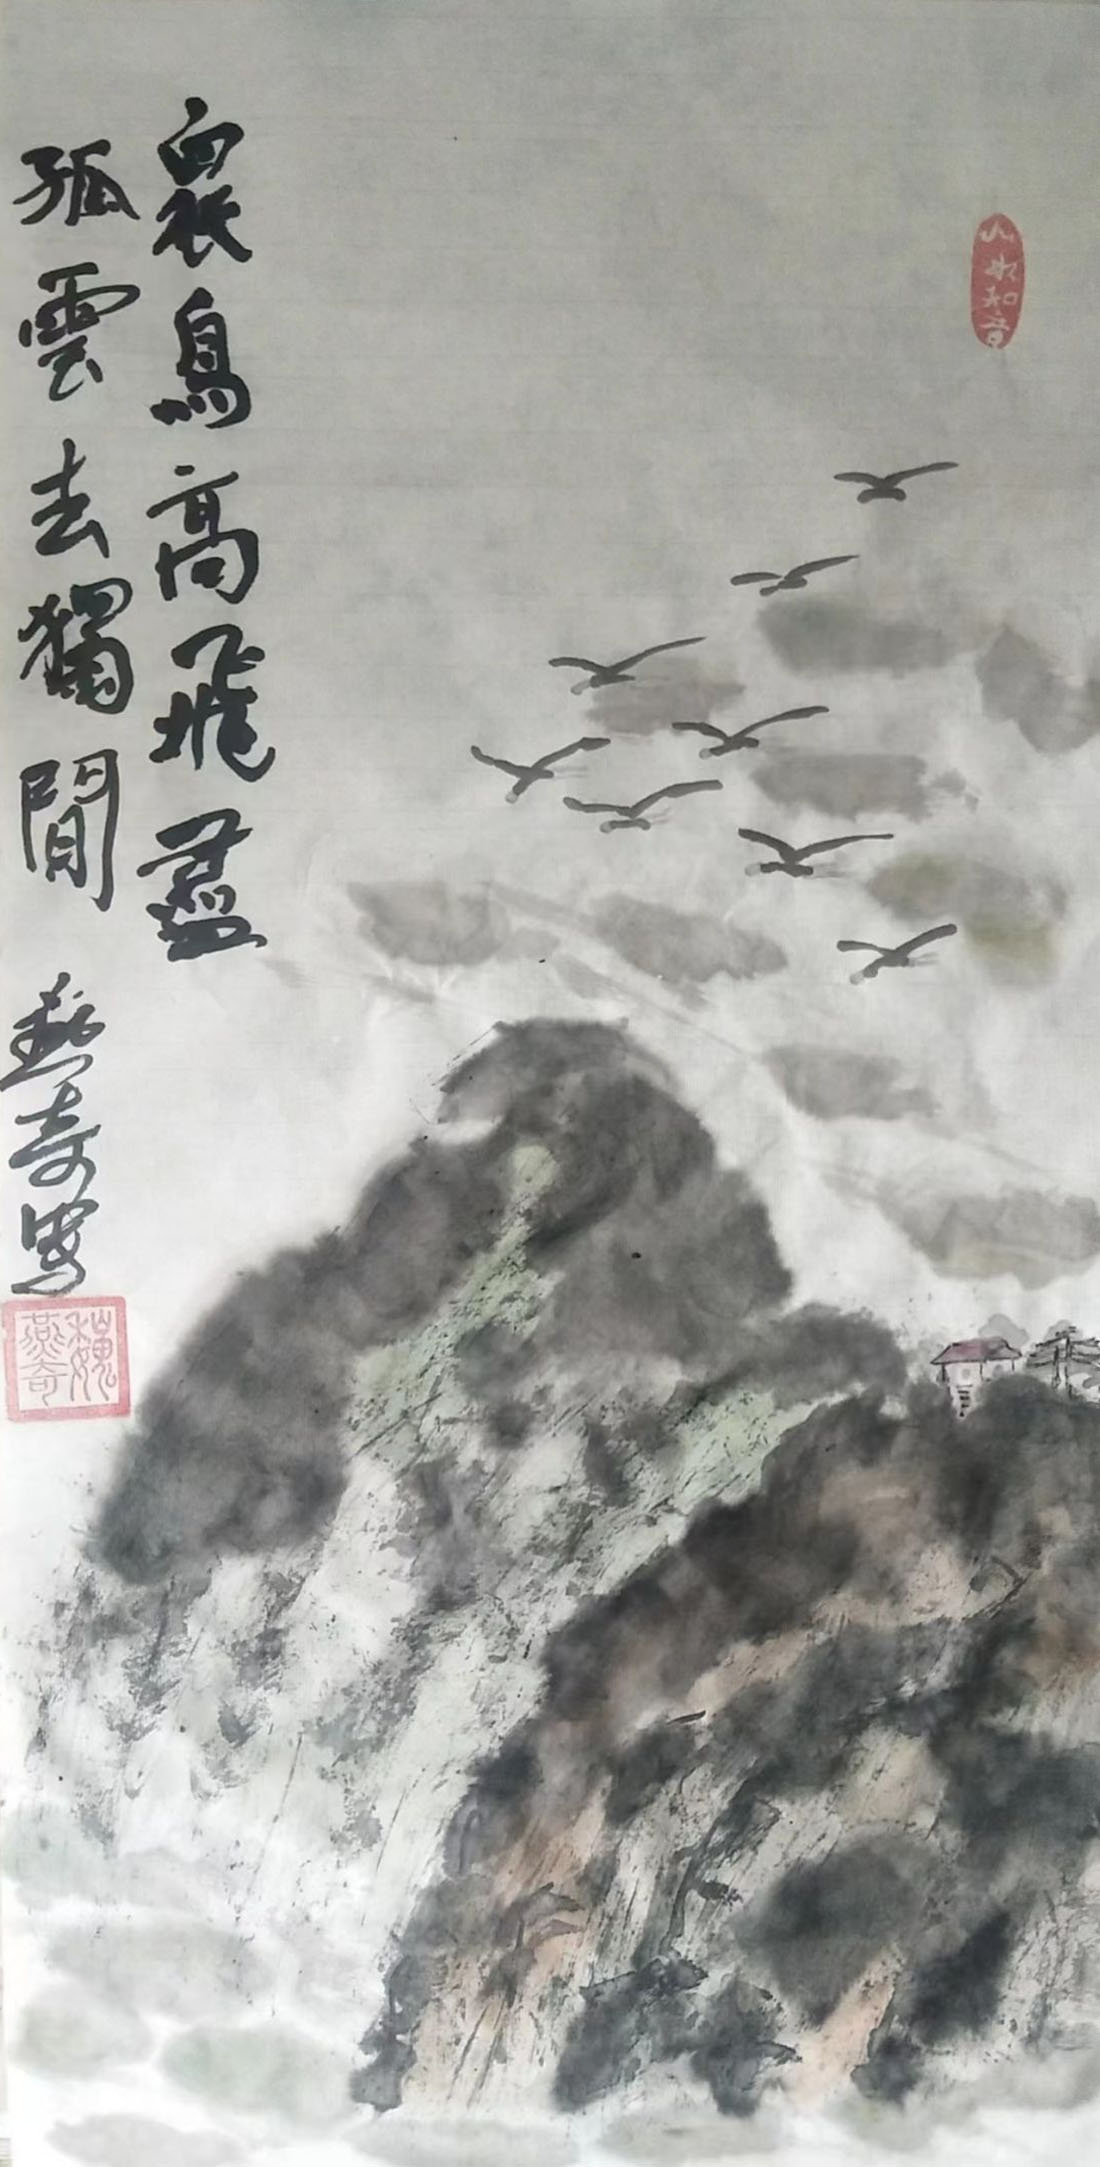 眾鳥高飛盡
孤雲去獨閒
燕奇写
山水知音
魏燕奇